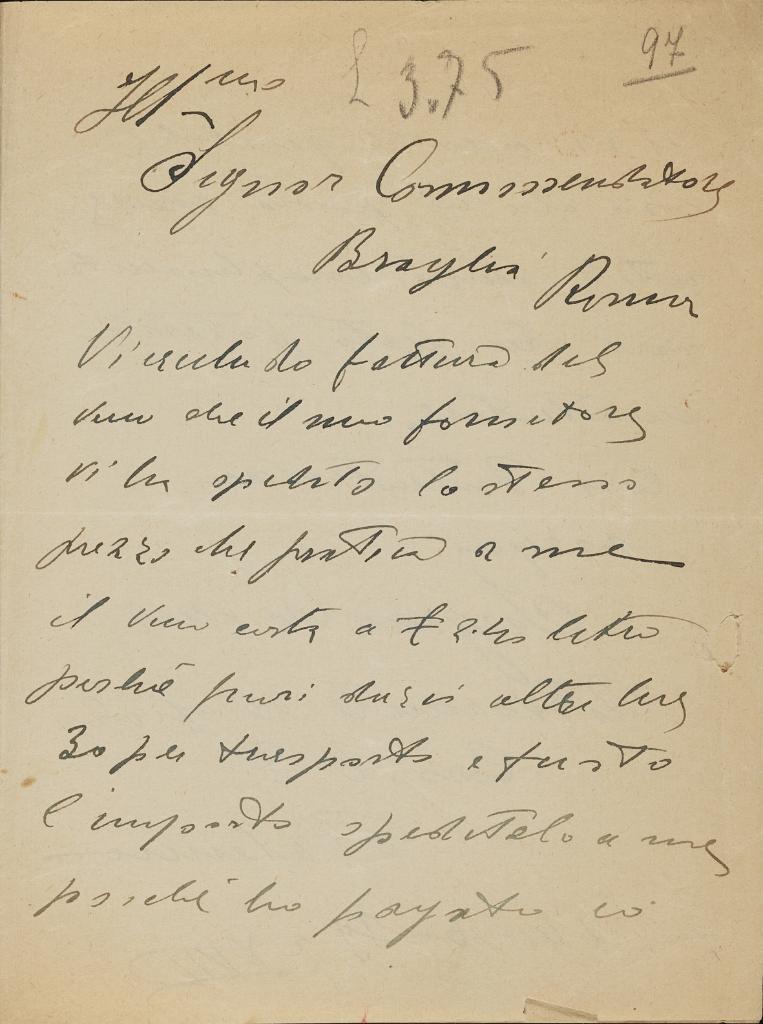 97
£ 3.75
Ill/mo
Signor Commendatore
Braglia Roma
Vi includo fattura del
vino che il mio fornitore
vi ha spedito lo stesso
prezzo che pratica a me
il vino costa a £ 2.40 litro
perché fuori dazi altre lire
30 per trasporto e fusto
l'importo speditelo a me
poiché ho pagato io